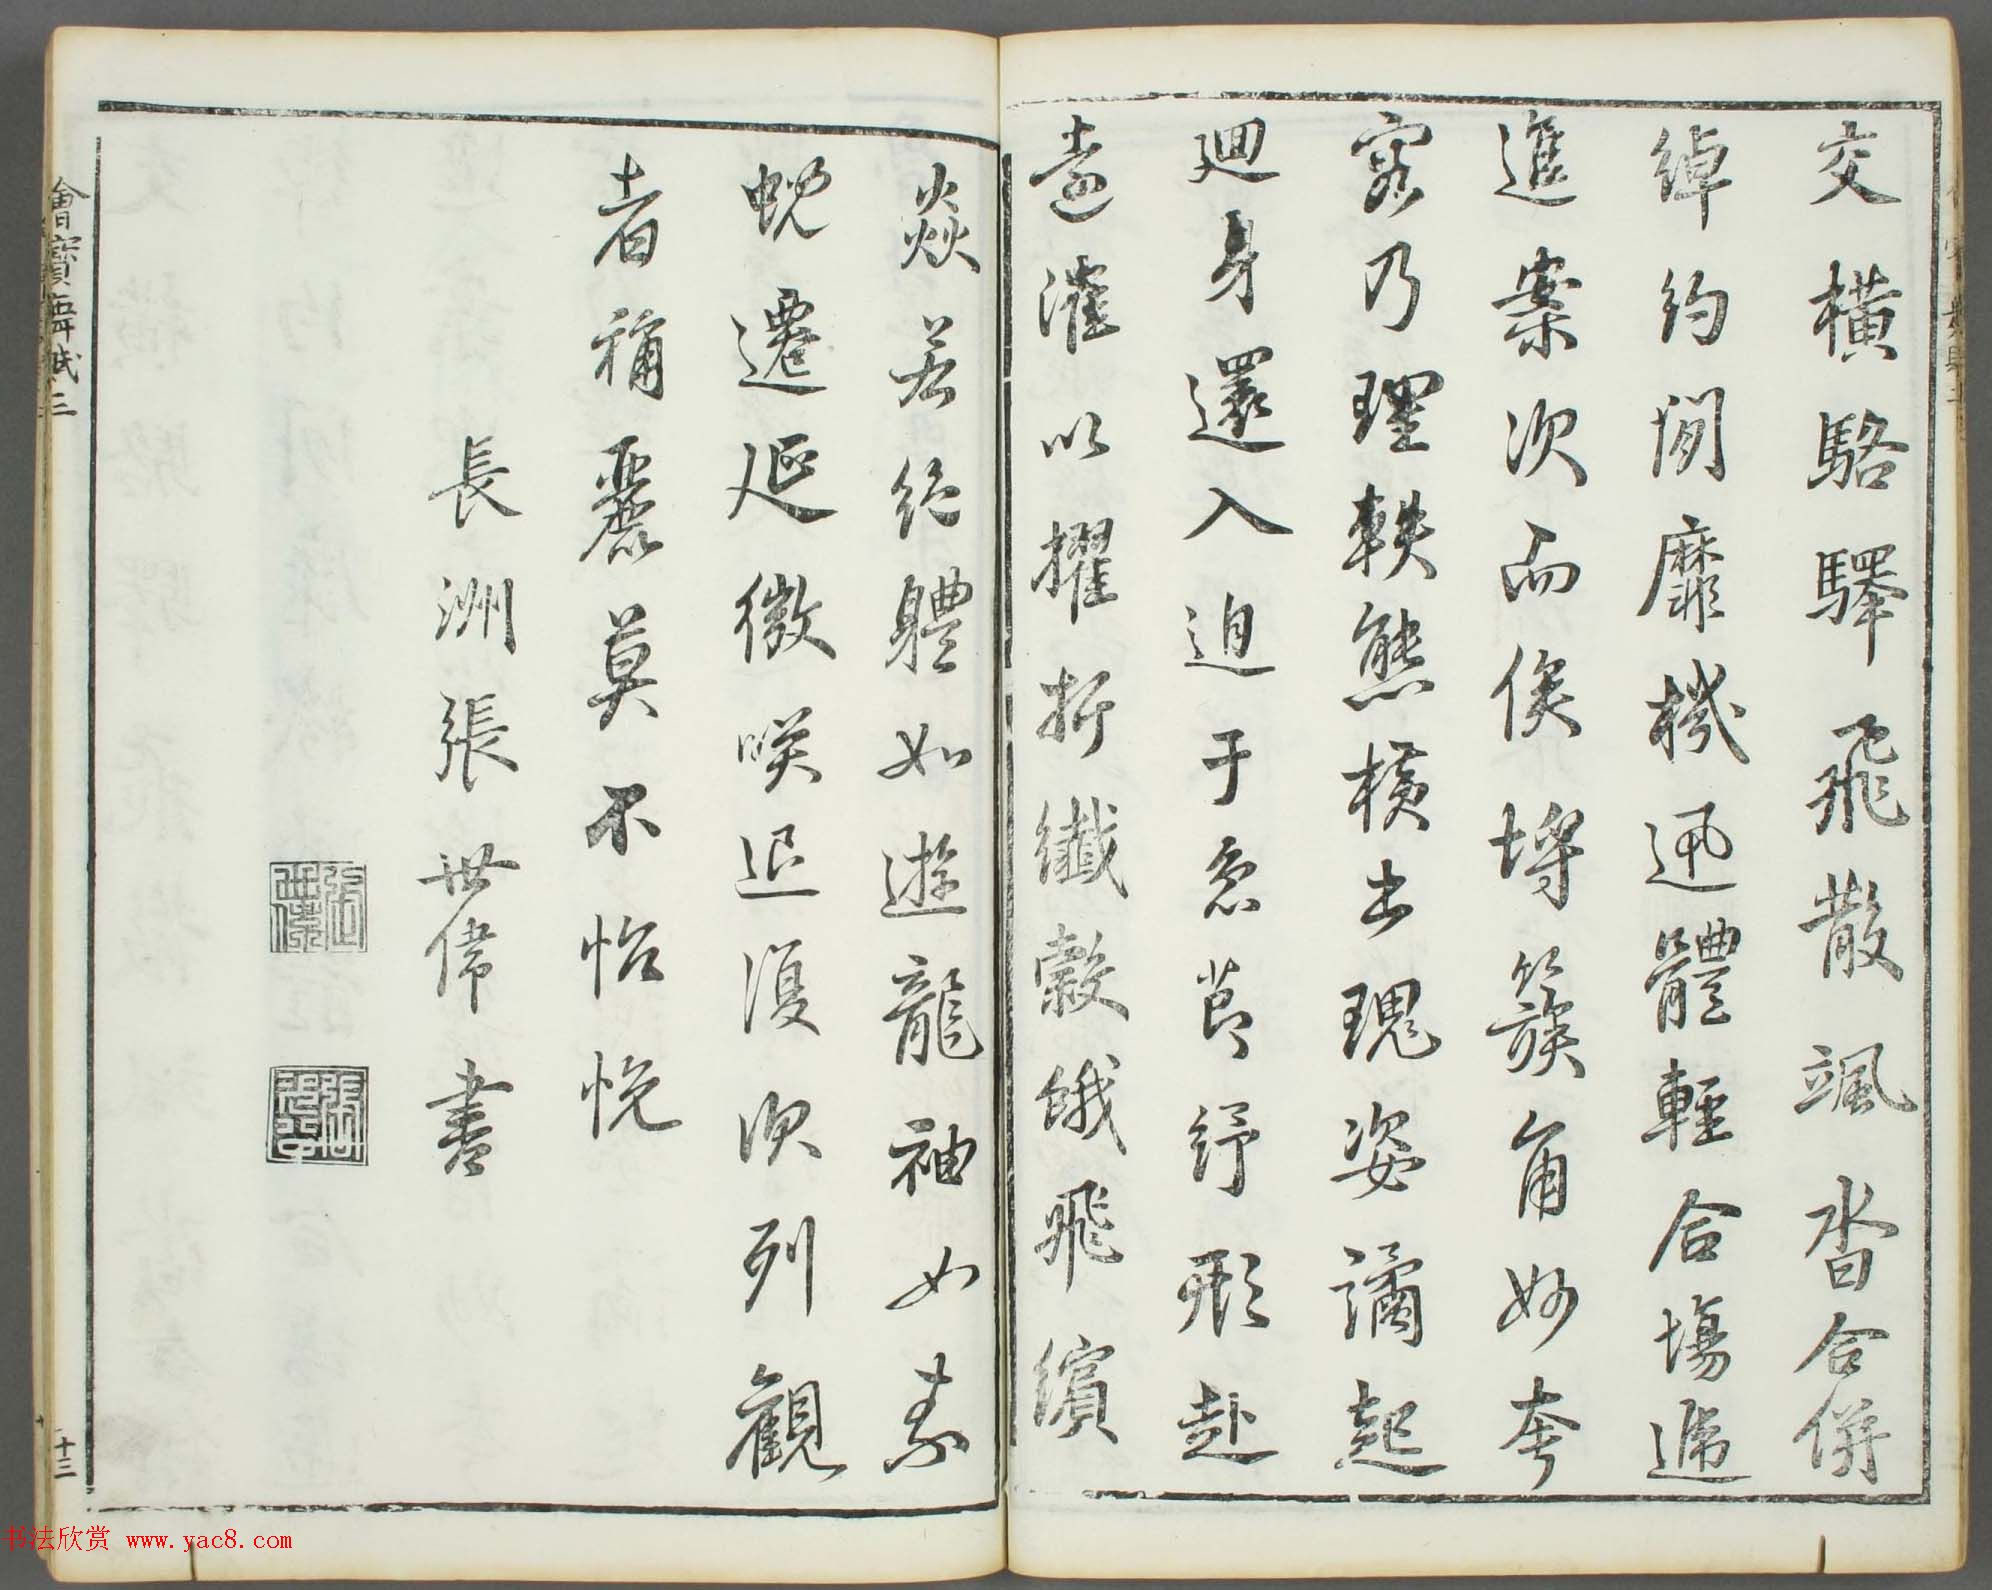 交橫駱驛飛散颯沓合併
綽約閒靡機迅體輕合場遞
進案次而俟埒簇角妙夸
容乃理軼態橫出瑰姿譎起
迴身還入迫于急節紆形赴
遠漼以摧折纖縠蛾飛繽
焱若絕體如遊龍袖如素
蜺遷延微咲退復次列觀
者稱麗莫不怡悅
長洲張世偉書
張世偉
十三
书法欣赏 www.yac8.com